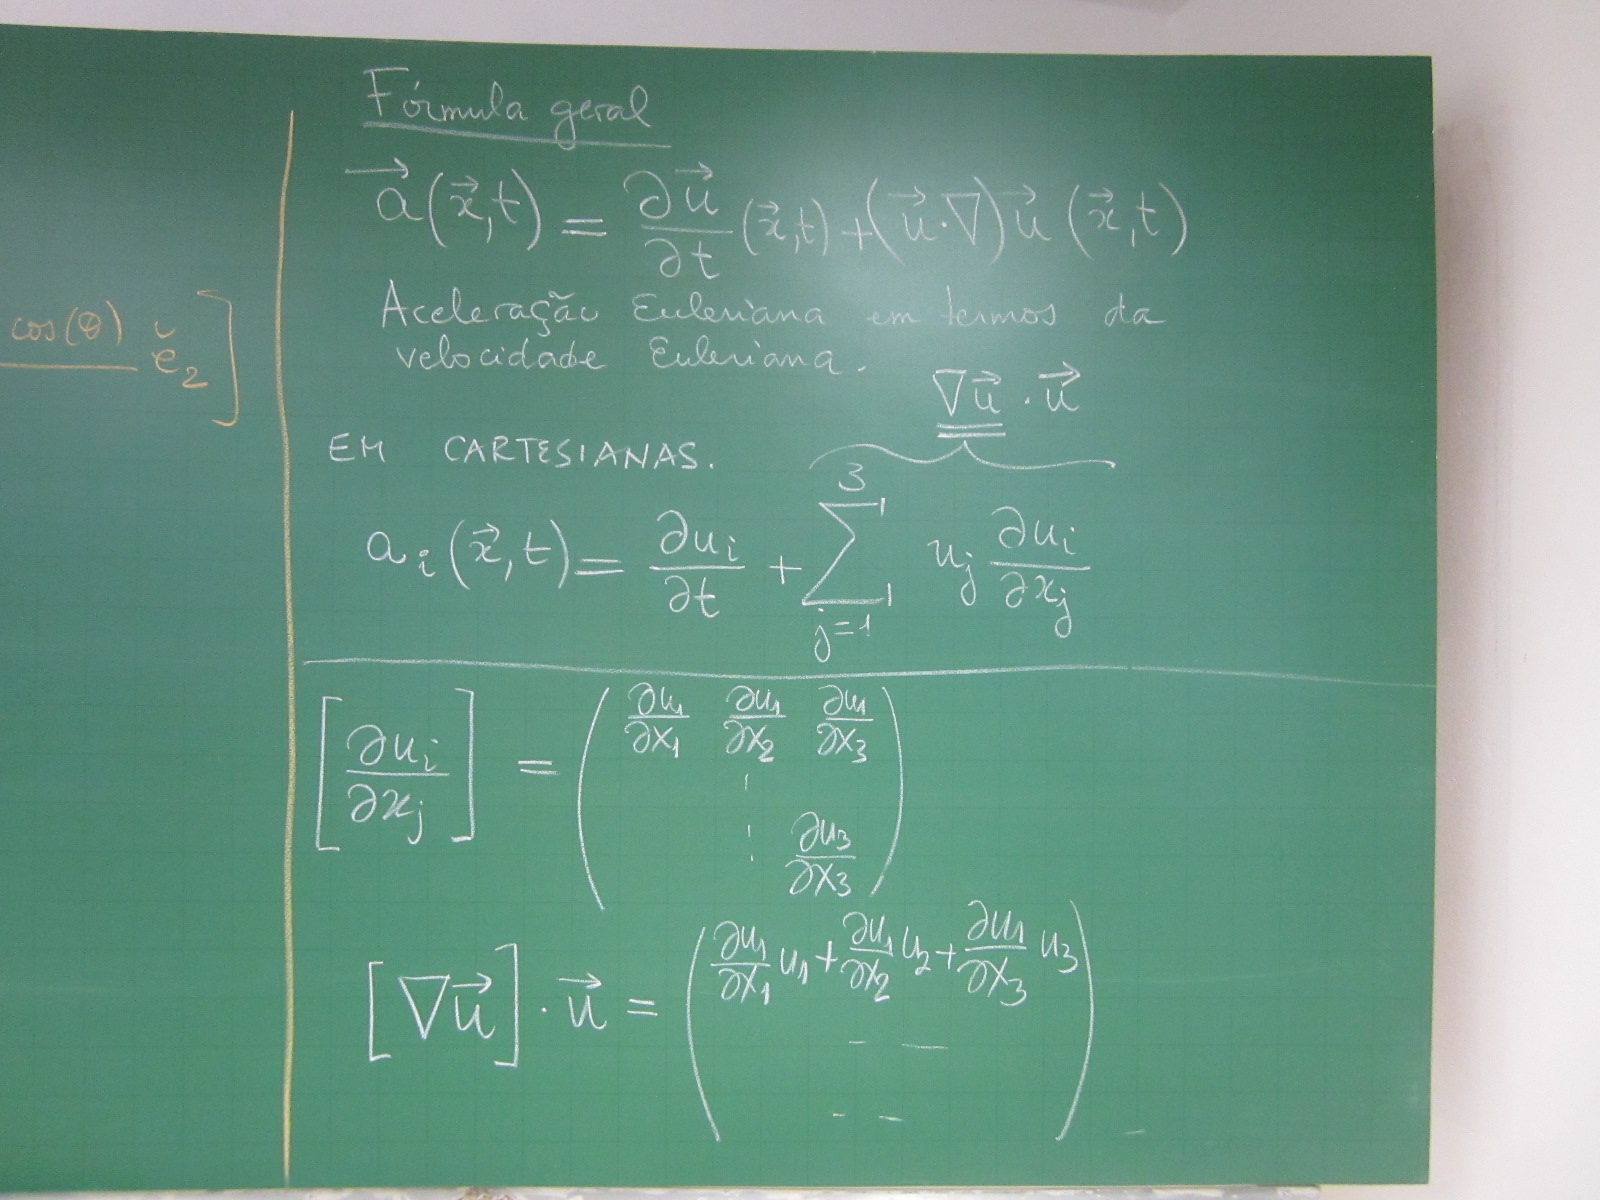 cos(θ) ě₂ ]
Fórmula geral
a⃗(x⃗,t) = ∂u⃗/∂t (x⃗,t) + (u⃗·∇)u⃗ (x⃗,t)
Aceleração Euleriana em termos da
velocidade Euleriana.
∇u⃗ · u⃗
EM CARTESIANAS.
aᵢ(x⃗,t) = ∂uᵢ/∂t + ∑_{j=1}^{3} uⱼ ∂uᵢ/∂xⱼ
[∂uᵢ/∂xⱼ] = ( ∂u₁/∂x₁ ∂u₁/∂x₂ ∂u₁/∂x₃
⋮
⋮ ∂u₃/∂x₃ )
[∇u⃗] · u⃗ = ( ∂u₁/∂x₁ u₁ + ∂u₁/∂x₂ u₂ + ∂u₁/∂x₃ u₃
- -
- - )